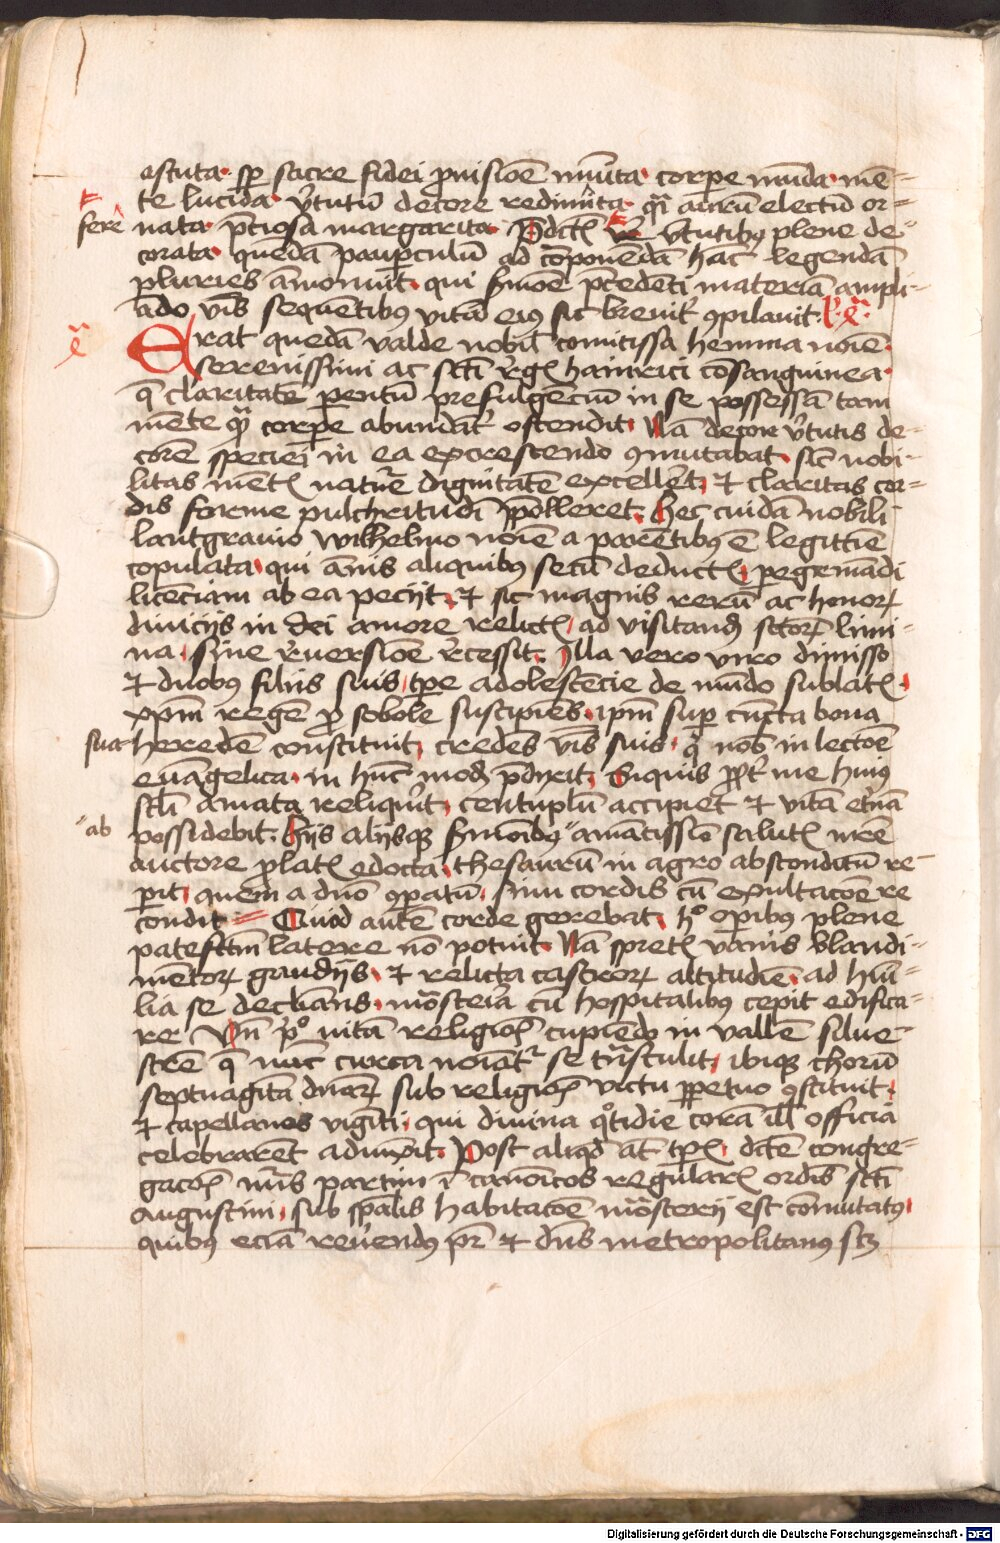 astuta. sp sacre fidei puisiōe mūita. corpe mūda. mē-
te lucida. v̄tutū decore redimita. q̄i aurū electū or-
fere nata. p̄ciosa margarita. P̄dc̄ꝭ v̄tutibꝯ plene de-
corata. quedā paupculū ad cōponēdā hāc legendā
pluries āmonuit. qui ẜmōe p̄cedēti materiā ampli-
ādo v̄bis sequētibꝯ vitā eiꝯ sic breuit̄ ꝯpilauit.
Erat quedā valde nobil̄ comitissa hemma noīe.
serenissimi ac sc̄ti r̄gꝭ hainrici cōsanguinea.
q̄ claritatē pentū prefulgenciū in se possessā tam
mente q̄ corpe abundāt̄ ostendit. Nā decor v̄tutis de-
corē speciei in ea excrescendo ꝯmutabat. sic nobi-
litas mentꝭ nature dignitatē excelleret. ⁊ claritas cor-
dis forme pulchritudī p̄polleret. Hec cuidā nobili
lantgrauio wilhelmo noīe a parētibꝯ ē legittīe
copulata. qui ānis aliquibꝯ secū deductꝭ. pegrinādi
licēciam ab ea peciit. ⁊ sic magnis rerū ac honorꝝ
diuicijs in dei amore relictꝭ. ad visitandꝭ sc̄torꝝ limi-
na. sine r̄uersiōe r̄cessit. Illa vero viro dimisso
⁊ duobꝯ filiis suis. tꝑe adolescēcie de mūdo sublatꝭ.
xp̄m regē ꝓ sobole suscipiēs. ip̄m suꝑ cūcta bona
sua heredē constituit. credēs v̄bis suis. q̄ nob̄ in lectōe
euāgelica. in hūc modꝭ p̄dixit. Siquis ꝓpt̄ me huiꝯ
sc̄li amata reliquīt. centuplū accipiet ⁊ vitā et̄nā
"ab possidebit. Hijs alijsqꝫ ẜmōibꝯ" amātissīe salutꝭ n̄re
auctore platꝭ edocta. thesaurū in agro absconditū re-
pit. quem a dn̄o ꝯpatū. sinu cordis cū exultacōe re
condit. Quod autē corde gerebat. hº opibꝯ plene
patefctm latere nō potuit. Nā spretꝭ vanis blandi-
mētorꝝ gaudijs. ⁊ relicta castrorꝝ altitudīe. ad hūi-
lia se declinans. mōsteria cū hospitalibꝯ cepit edifica-
re. Vn̄ pº vitā religiosā cupiēdo in vallē silue-
strē q̄ nūc curca noiāt̄ se trāstulit. ibiqꝫ chorū
septuagīta dn̄arꝝ sub religiosꝭ victu ꝑpetuo ꝯstituit.
⁊ capellanos viginti. qui diuina qͦtidie corā ill̄ officia
celebrarēt adiunxit. Post aliqd̄ āt tp̄ꝭ. dc̄ē congre-
gacōꝭ mūs partim ī canōicos regularꝭ ordīs sc̄ti
Augustini. sub sp̄alis habitacōe mōsterij est cōmutatꝯ.
quibꝯ eciā reuēendꝯ pr̄ ⁊ dn̄s metropolitanꝯ scꝫ
Digitalisierung gefördert durch die Deutsche Forschungsgemeinschaft - DFG